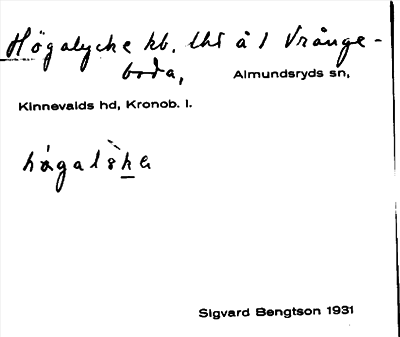 Högalycke kb. lht å 1 Vrånge-
boda, Almundsryds sn,
Kinnevalds hd, Kronob. l.
hǻgalske
Sigvard Bengtson 1931